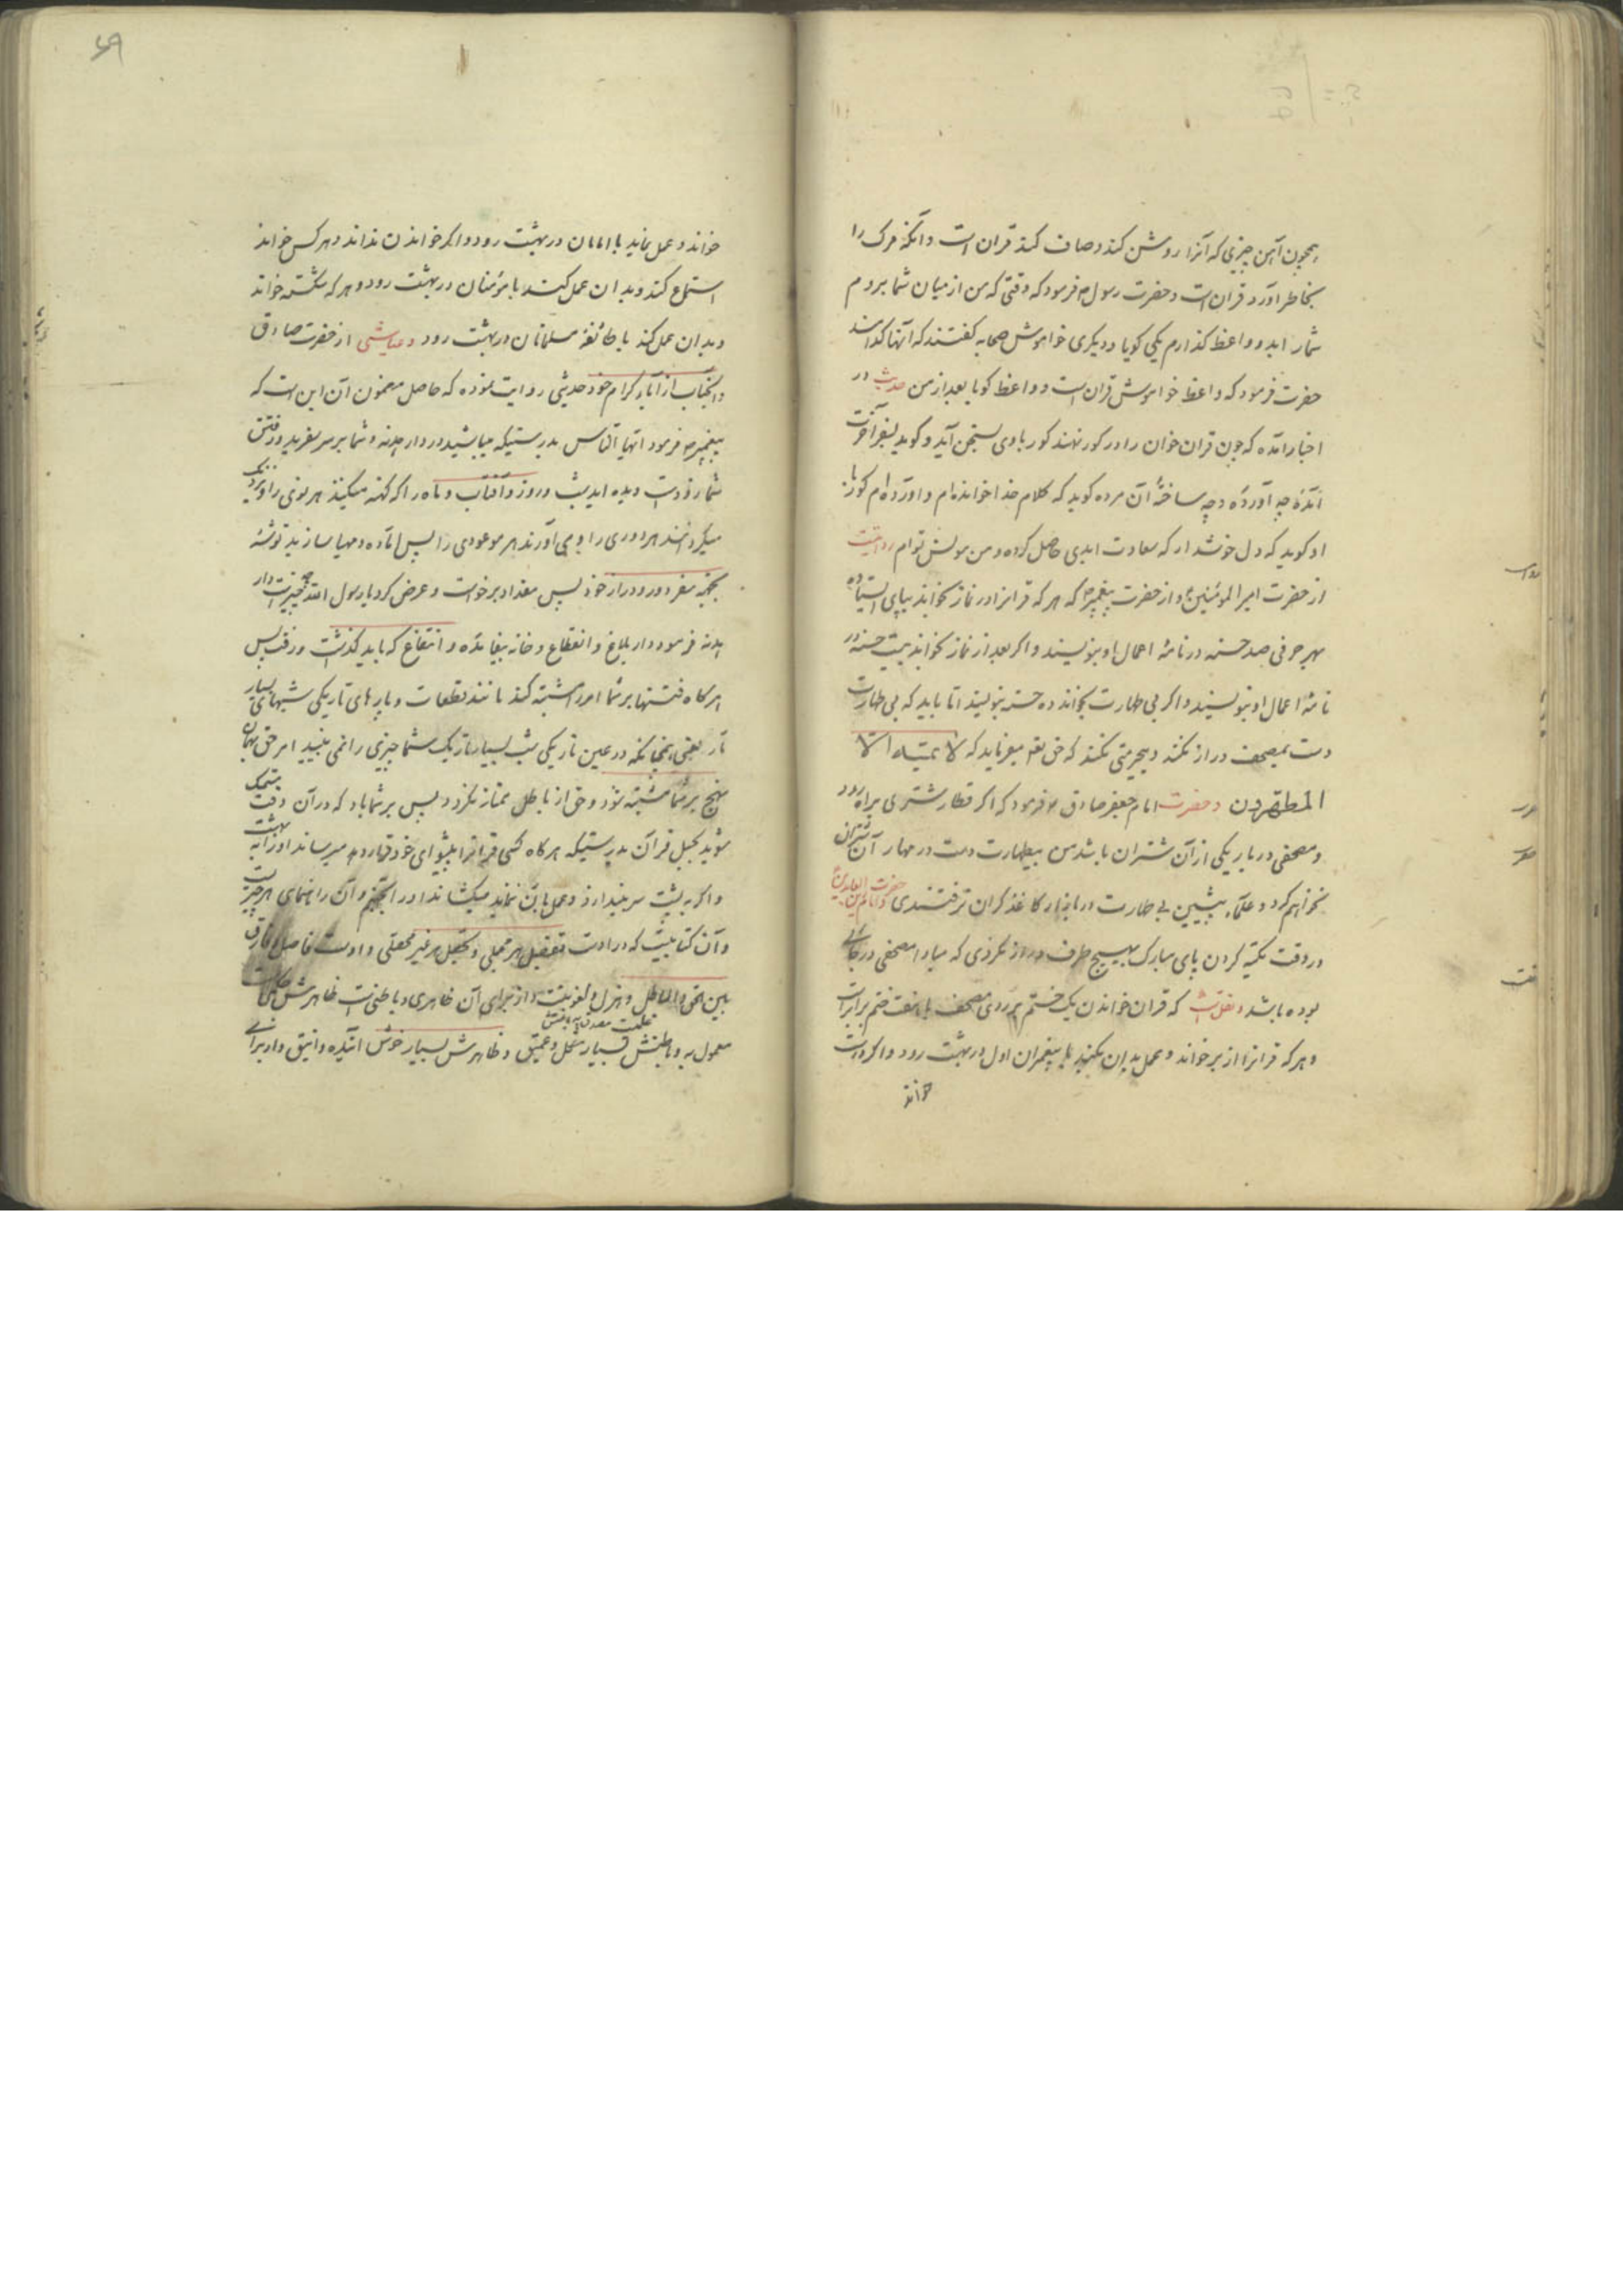 همچون آهن چیزی که آنرا روشن کند و صاف کند قران است و آنکه مرک را
بخاطر آورد قران است و حضرت رسول ص فرمود که وقتی که من از میان شما بردم
شمارا بدو واعظ کذارم یکی کویا و دیکری خاموش صحابه کفتند که آنها کدامند
حضرت فرمود که واعظ خواموش قران است و واعظ کویا بعد از من حدیث در
اخبار آمده که چون قران خوان را در کور نهند کور با وی بسخن آید و کوید بسفر آخرت
آمدهٔ چه آوردهٔ و چه ساختهٔ آن مرده کوید که کلام خدا خوانده‌ام و آورده‌ام کور با
او کوید که دل خوشدار که سعادت ابدی حاصل کرده و من مونس توام روایت
از حضرت امیر المومنین ع و از حضرت پیغمبر ص که هر که قرانرا در نماز بخواند بپای ایستاده
بهر حرفی صد حسنه در نامهٔ اعمال او بنویسند و اکر بعد از نماز بخواند بیست حسنه در
نامهٔ اعمال او بنویسند و اکر بی طهارت بخواند ده حسنه بنویسند اما باید که بی طهارت
دست بمصحف دراز نکند و بیحرمتی نکند که حق تعه میفرماید که لا یمسه الا
المطهرون و حضرت امام جعفر صادق ع فرمود که اکر قطار شتری براه رود
و مصحفی در بار یکی از آن شتران باشد من بیطهارت دست در مهار آن شتران
نخواهم کرد و علماء پیشین بی طهارت در بازار کاغذ کران نرفتندی و حضرت امام زین العابدین
در وقت تکیه کردن پای مبارک بهیچ طرف دراز نکردی که مبادا مصحفی در جائی
بوده باشد و نقلست که قران خواندن یک ختم بر روی مصحف با هفت ختم برابر است
و هر که قرانرا از بر خواند و عمل بدان بکند با پیغمبران اول در بهشت رود و اکر درست
خواند
خواند و عمل نماید با امامان در بهشت رود و اکر خواندن نداند و هر کس خواند
استماع کند و بدان عمل کند با مؤمنان در بهشت رود و هر که شکسته خواند
و بدان عمل کند با طائفهٔ مسلمانان در بهشت رود و عیاشی از حضرت صادق
و آنجناب از آباء کرام خود حدیثی روایت نموده که حاصل مضمون آن این است که
پیغمبر ص فرمود ایها الناس بدرستیکه میباشید در دار هدنه و شما بر سر سفرید و رفتن
شما زود است و دیده‌اید شب و روز و آفتاب و ماه را که کهنه میکنند هر نوی را و نزدیک
میکردانند هر دوری را و می‌آورند هر موعودی را پس آماده و مهیا سازید توشهٔ
بجهة سفر دور و دراز خود پس مقداد برخواست و عرض کرد یا رسول الله چه چیز است دار
هدنه فرمود دار بلاغ و انقطاع و خانه بیفایده و انتفاع که باید کذشت و رفت پس
هر کاه فتنها بر شما امر را مشتبه کند مانند قطعات و پارهای تاریکی شبهای بسیار
تار یعنی همچنانکه در عین تاریکی شب بسیار تاریک شما چیزی را نمی بینید امر حق بهمان
نهج بر شما مشتبه شود و حق از باطل ممتاز نکردد پس بر شما باد که در آن وقت متمسک
شوید بحبل قرآن بدرستیکه هر کاه کسی قرانرا پیشوای خود قرار دهد میرساند او را به بهشت
و اکر به پشت سر بیندازد و عمل بآن ننماید میکشاند او را بجهنم و آن راهنمای هر خیر است
و آن کتابیست که در اوست تفصیل هر مجملی و تحصیل هر غیر محصلی و اوست فاصل و فارق
بین الحق و الباطل و هزل و لغو نیست و از برای آن ظاهری و باطنی است ظاهرش حکم است
معمول به و باطنش بسیار مشکل و عمیق و ظاهرش بسیار خوش آینده و انیق و او برای